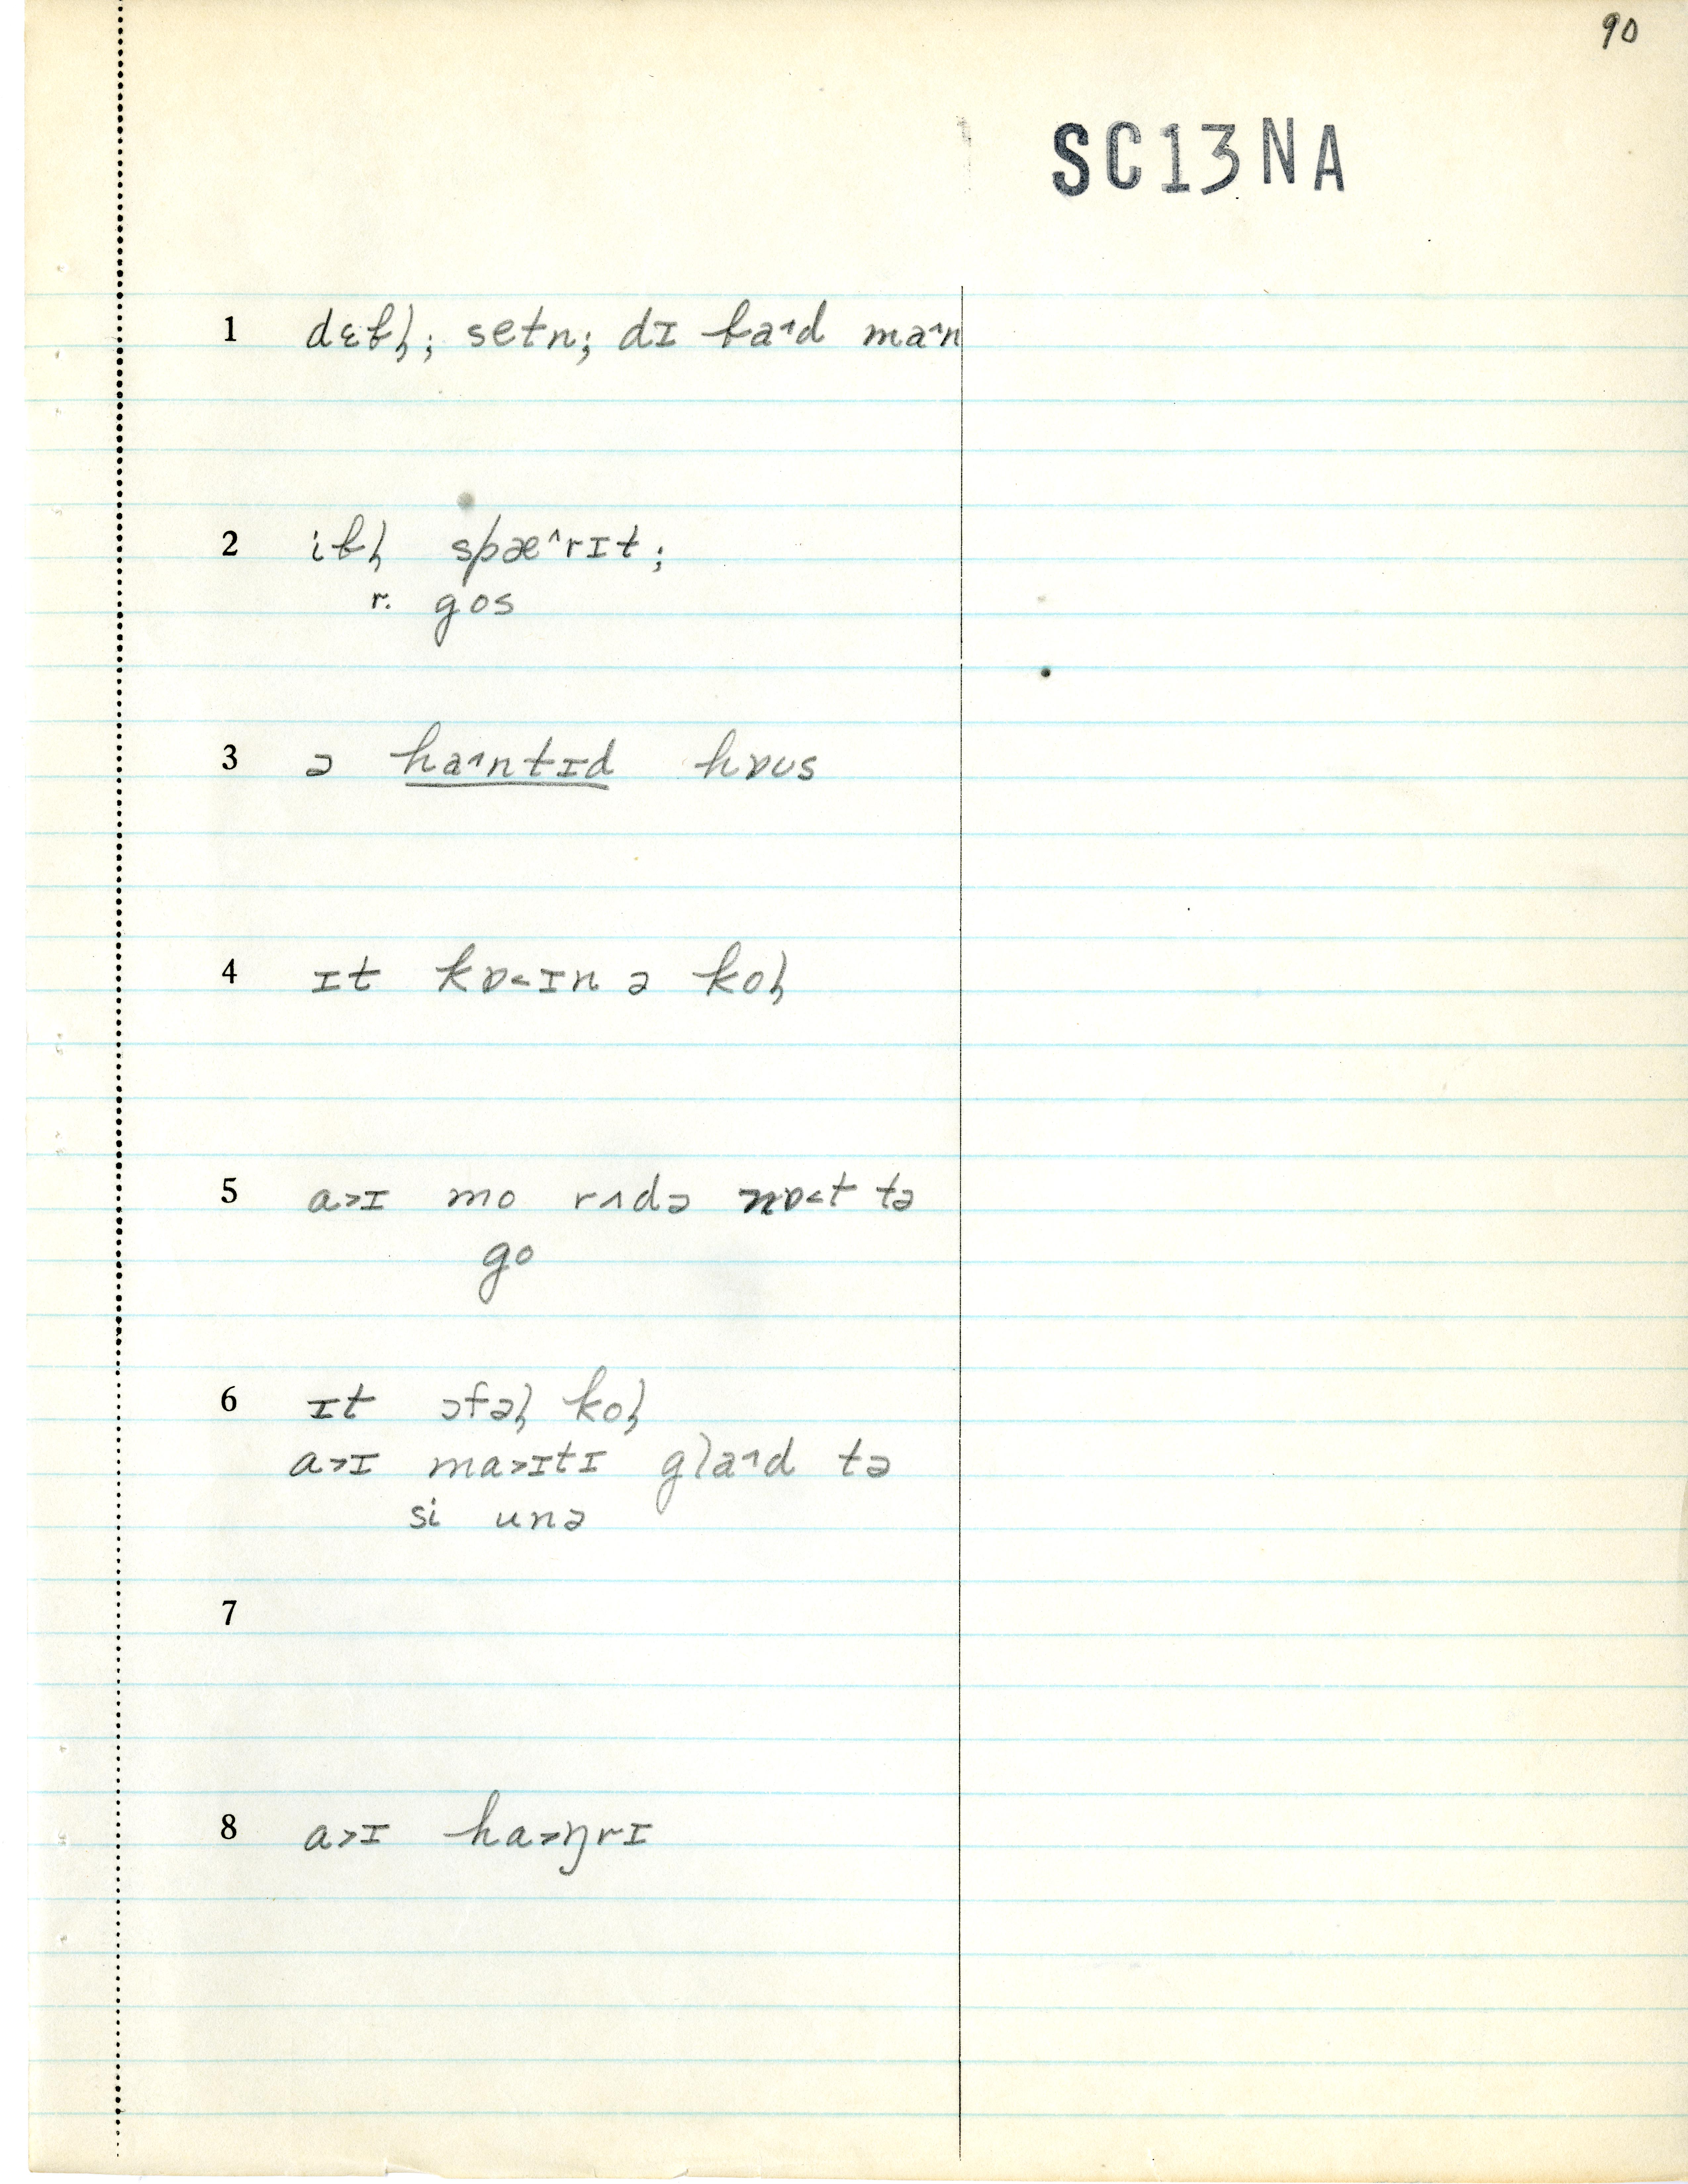 90
SC13NA
1 dɛbl̩; setn; dɪ ba˄d ma˄n
2 ibl̩ spæ˄rɪt;
r. gos
3 ə ha˄ntɪd hɒʊs
4 ɪt kɒ˂ɪn ə kol̩
5 a˃ɪ mo rʌdə nɒ˂t tə
go
6 ɪt ɔfəl̩ kol̩
a˃ɪ ma˃ɪtɪ gla˄d tə
si unə
7
8 a˃ɪ ha˃ŋrɪ